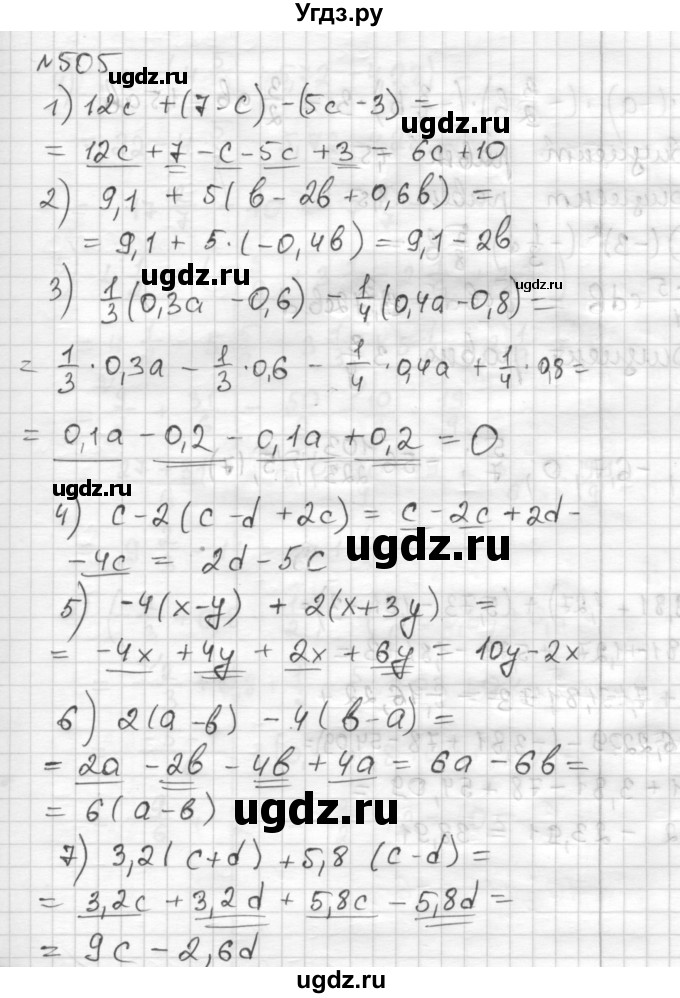 Угдз.ру
№505
угдз.ru
1) 12c + (7 - c) - (5c - 3) =
угдз.ru
= 12c + 7 - c - 5c + 3 = 6c + 10
2) 9,1 + 5(в - 2в + 0,6в) =
= 9,1 + 5·(-0,4в) = 9,1 - 2в
угдз.ru
угдз.ru
3) 1/3(0,3a - 0,6) - 1/4(0,4a - 0,8) =
= 1/3 · 0,3a - 1/3 · 0,6 - 1/4 · 0,4a + 1/4 · 0,8 =
= 0,1a - 0,2 - 0,1a + 0,2 = 0
угдз.ru
4) c - 2(c - d + 2c) = c - 2c + 2d -
угдз.ru
- 4c = 2d - 5c
5) -4(x - y) + 2(x + 3y) =
= -4x + 4y + 2x + 6y = 10y - 2x
6) 2(a - в) - 4(в - a) =
= 2a - 2в - 4в + 4a = 6a - 6в =
= 6(a - в)
угдз.ru
7) 3,2(c + d) + 5,8(c - d) =
= 3,2c + 3,2d + 5,8c - 5,8d =
= 9c - 2,6d
угдз.ru